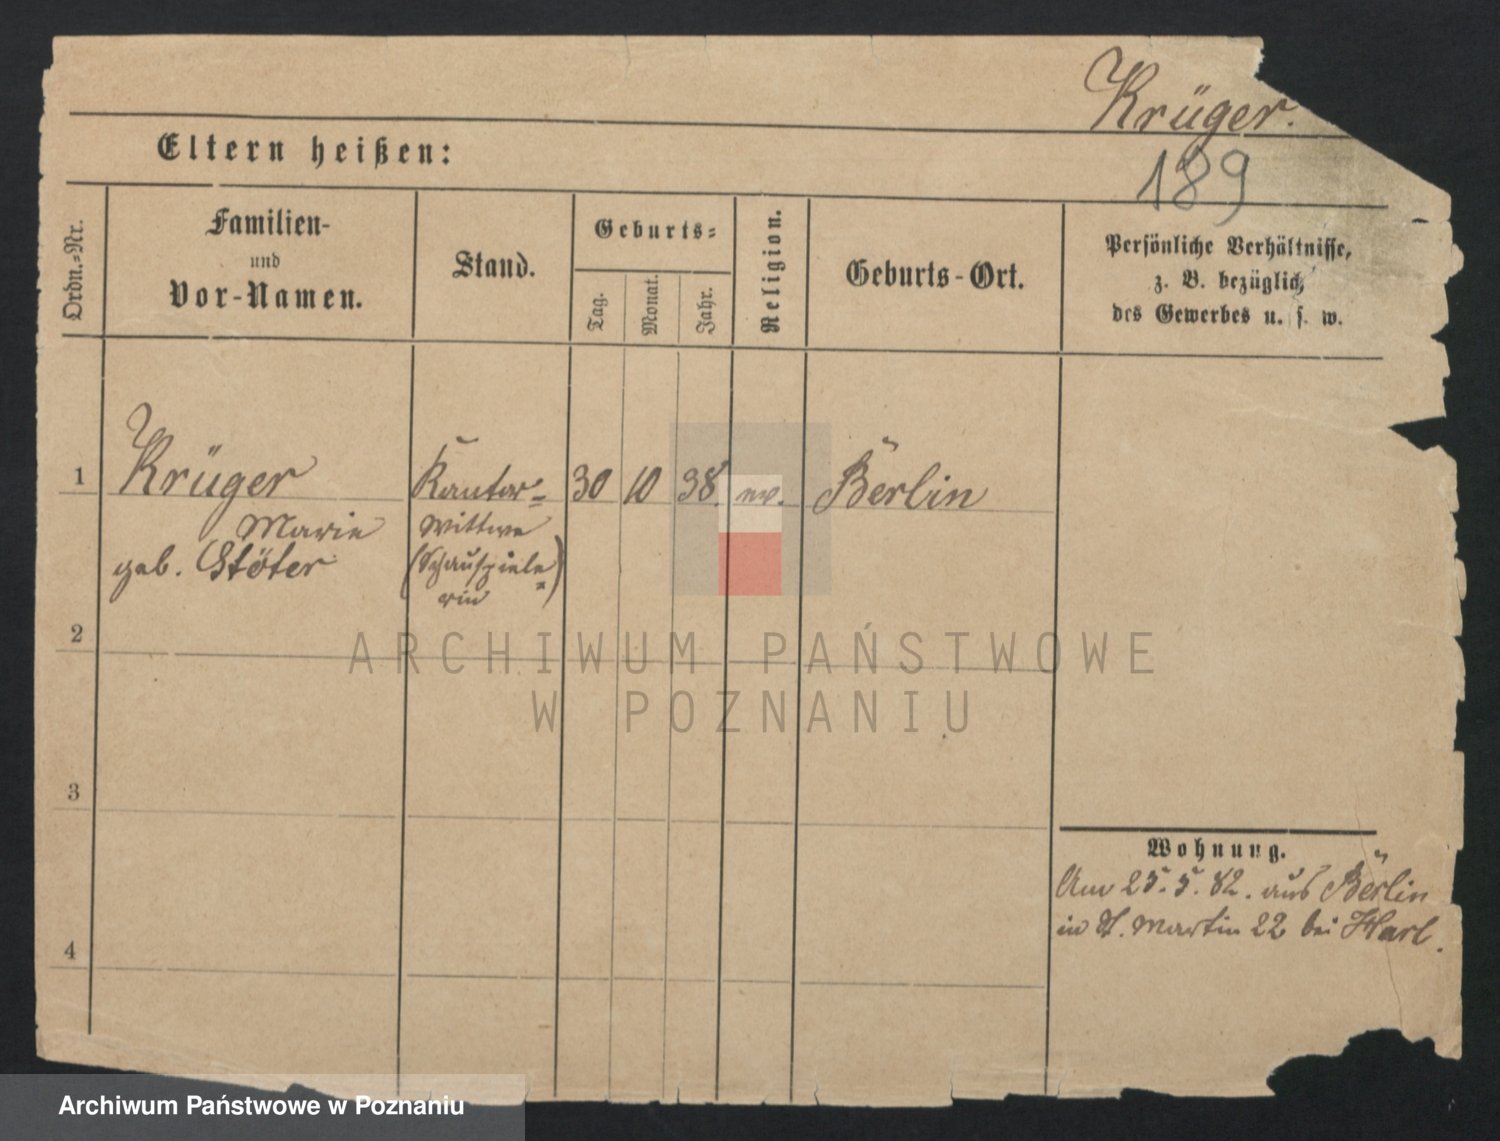 Krüger.
Eltern heißen:
189
Ordn.-Nr.
Familien-
und
Vor-Namen.
Stand.
Geburts-
Tag.
Monat.
Jahr.
Religion.
Geburts-Ort.
Persönliche Verhältnisse,
z. B. bezüglich
des Gewerbes u. s. w.
1
Krüger
Marie
geb. Stöter
Kantor-
Wittwe
(Schauspiele-
rin)
30
10
38.
ev.
Berlin
2
ARCHIWUM PAŃSTWOWE
W POZNANIU
3
Wohnung.
Am 25. 5. 82. aus Berlin
in St. Martin 22 bei
4
Archiwum Państwowe w Poznaniu